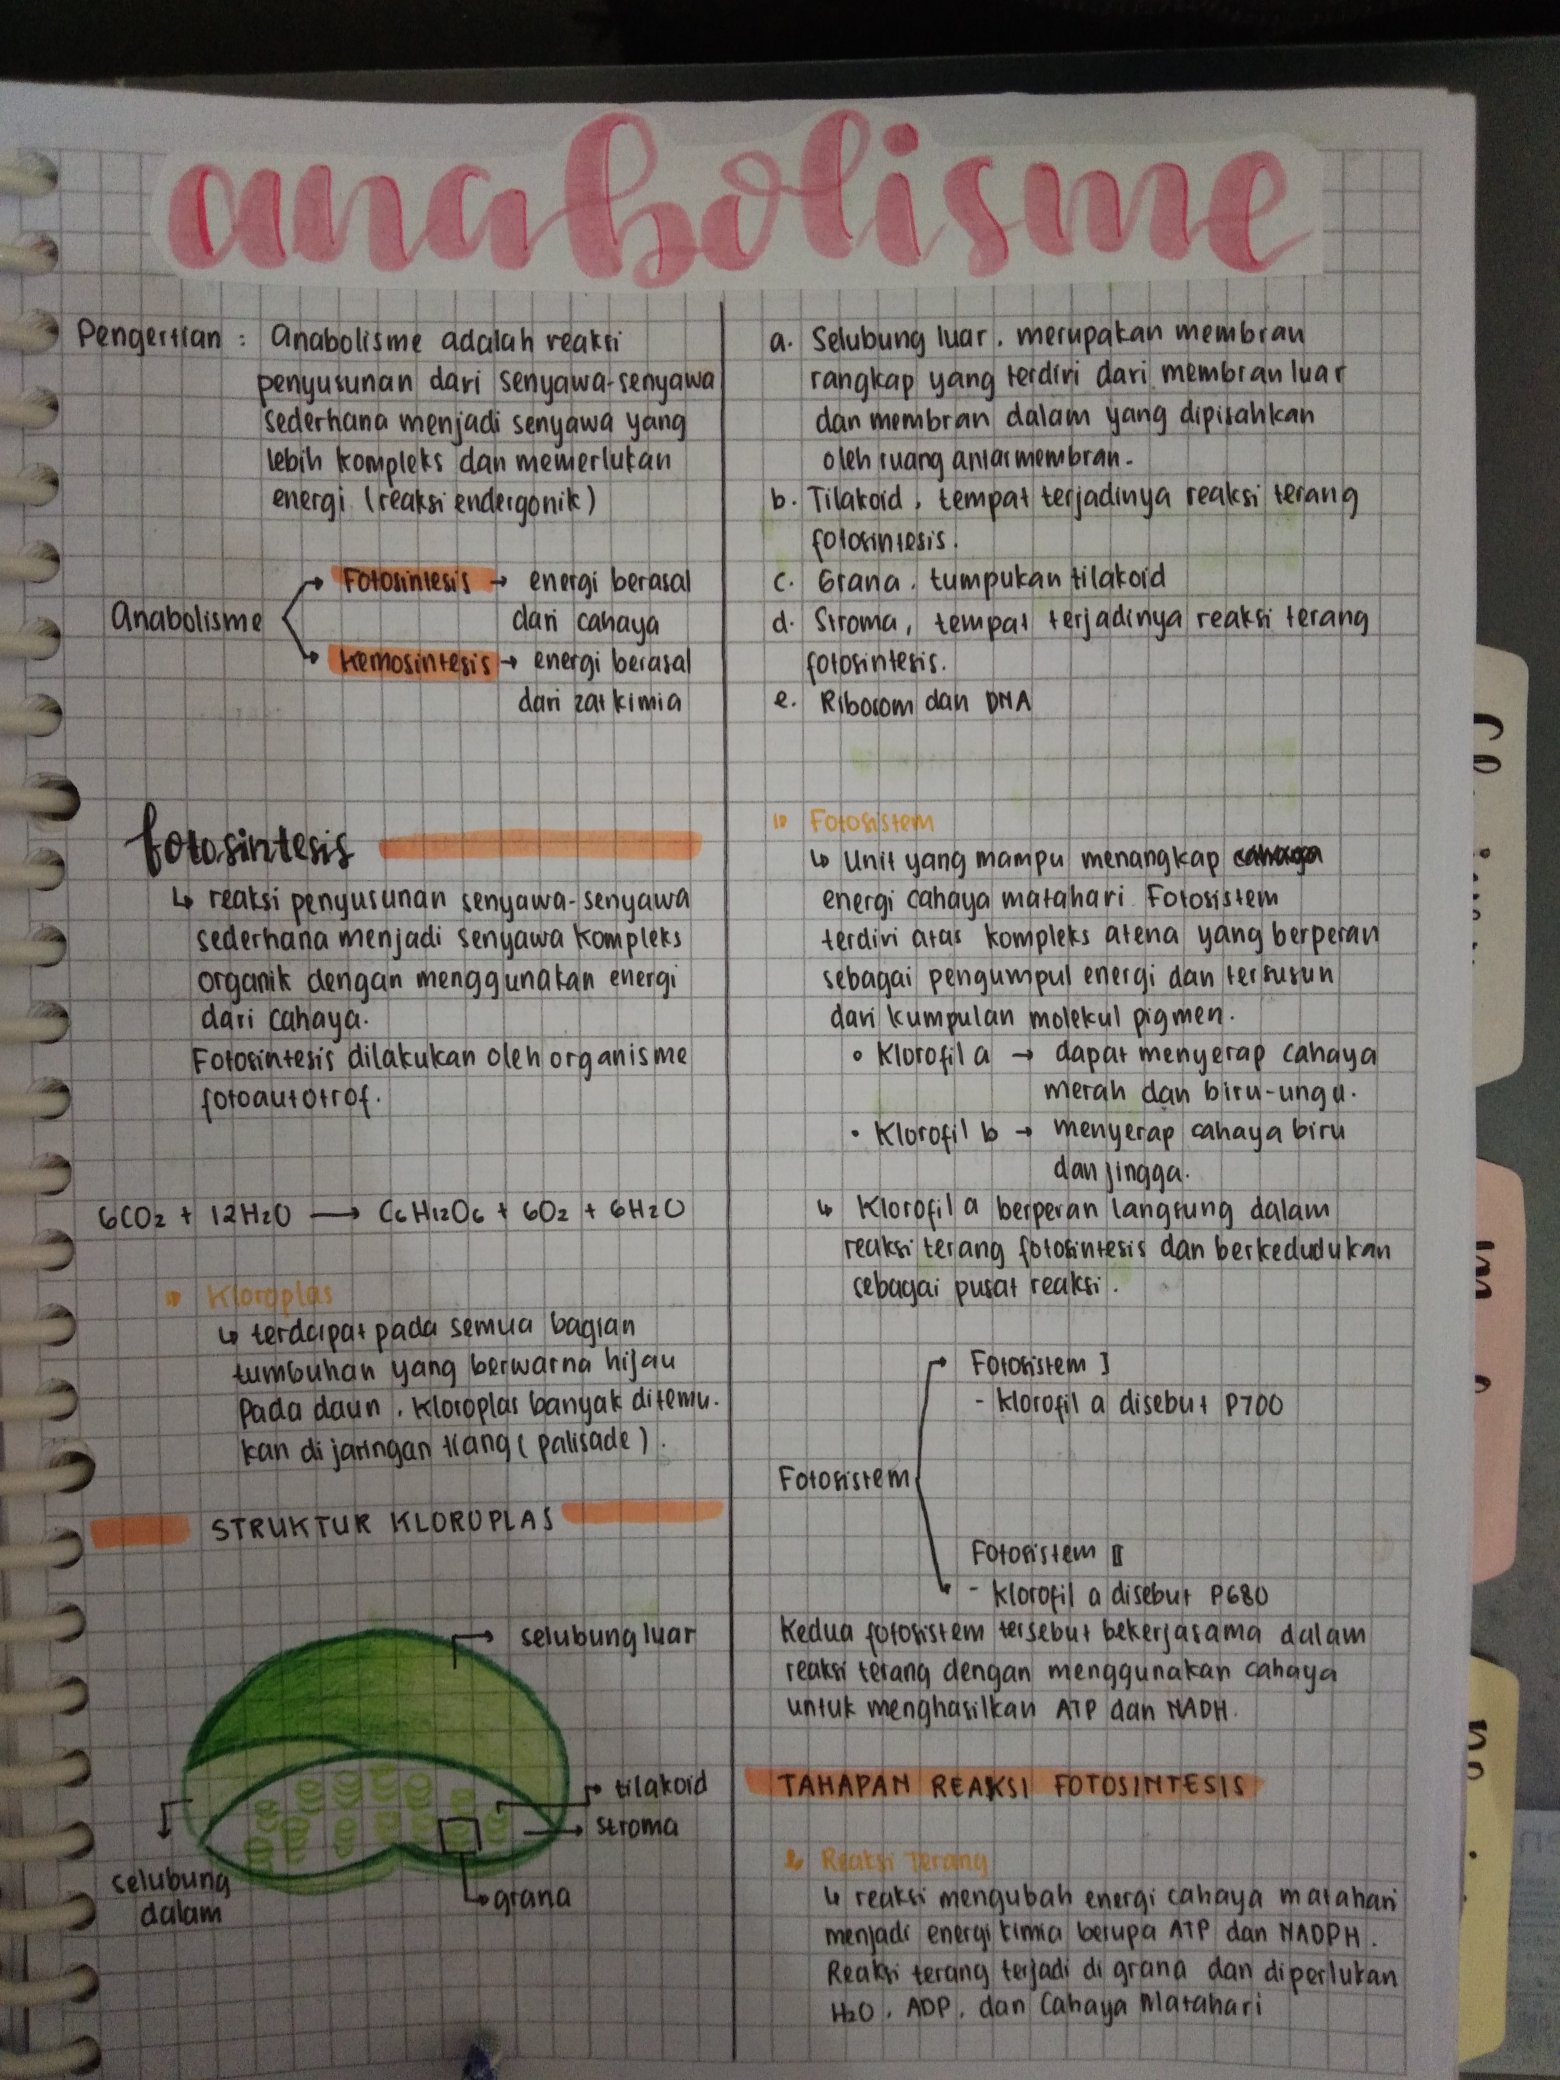 anabolisme
Pengertian : Anabolisme adalah reaksi
penyusunan dari senyawa-senyawa
sederhana menjadi senyawa yang
lebih kompleks dan memerlukan
energi (reaksi endergonik)
Anabolisme
Fotosintesis → energi berasal
dari cahaya
Kemosintesis → energi berasal
dari zat kimia
fotosintesis
↳ reaksi penyusunan senyawa-senyawa
sederhana menjadi senyawa kompleks
organik dengan menggunakan energi
dari cahaya.
Fotosintesis dilakukan oleh organisme
fotoautotrof.
6CO₂ + 12H₂O → C₆H₁₂O₆ + 6O₂ + 6H₂O
Kloroplas
↳ terdapat pada semua bagian
tumbuhan yang berwarna hijau
Pada daun, kloroplas banyak ditemu-
kan di jaringan tiang (palisade).
STRUKTUR KLOROPLAS
selubung luar
tilakoid
stroma
grana
selubung
dalam
a. Selubung luar, merupakan membran
rangkap yang terdiri dari membran luar
dan membran dalam yang dipisahkan
oleh ruang antarmembran.
b. Tilakoid, tempat terjadinya reaksi terang
fotosintesis.
c. Grana, tumpukan tilakoid
d. Stroma, tempat terjadinya reaksi terang
fotosintesis.
e. Ribosom dan DNA
Fotosistem
↳ Unit yang mampu menangkap
energi cahaya matahari. Fotosistem
terdiri atas kompleks atena yang berperan
sebagai pengumpul energi dan tersusun
dari kumpulan molekul pigmen.
• Klorofil a → dapat menyerap cahaya
merah dan biru-ungu.
• Klorofil b → menyerap cahaya biru
dan jingga.
↳ Klorofil a berperan langsung dalam
reaksi terang fotosintesis dan berkedudukan
sebagai pusat reaksi.
Fotosistem I
- klorofil a disebut P700
Fotosistem
Fotosistem II
- klorofil a disebut P680
Kedua fotosistem tersebut bekerjasama dalam
reaksi terang dengan menggunakan cahaya
untuk menghasilkan ATP dan NADH.
TAHAPAN REAKSI FOTOSINTESIS
Reaksi Terang
↳ reaksi mengubah energi cahaya matahari
menjadi energi kimia berupa ATP dan NADPH.
Reaksi terang terjadi di grana dan diperlukan
H₂O, ADP, dan Cahaya Matahari